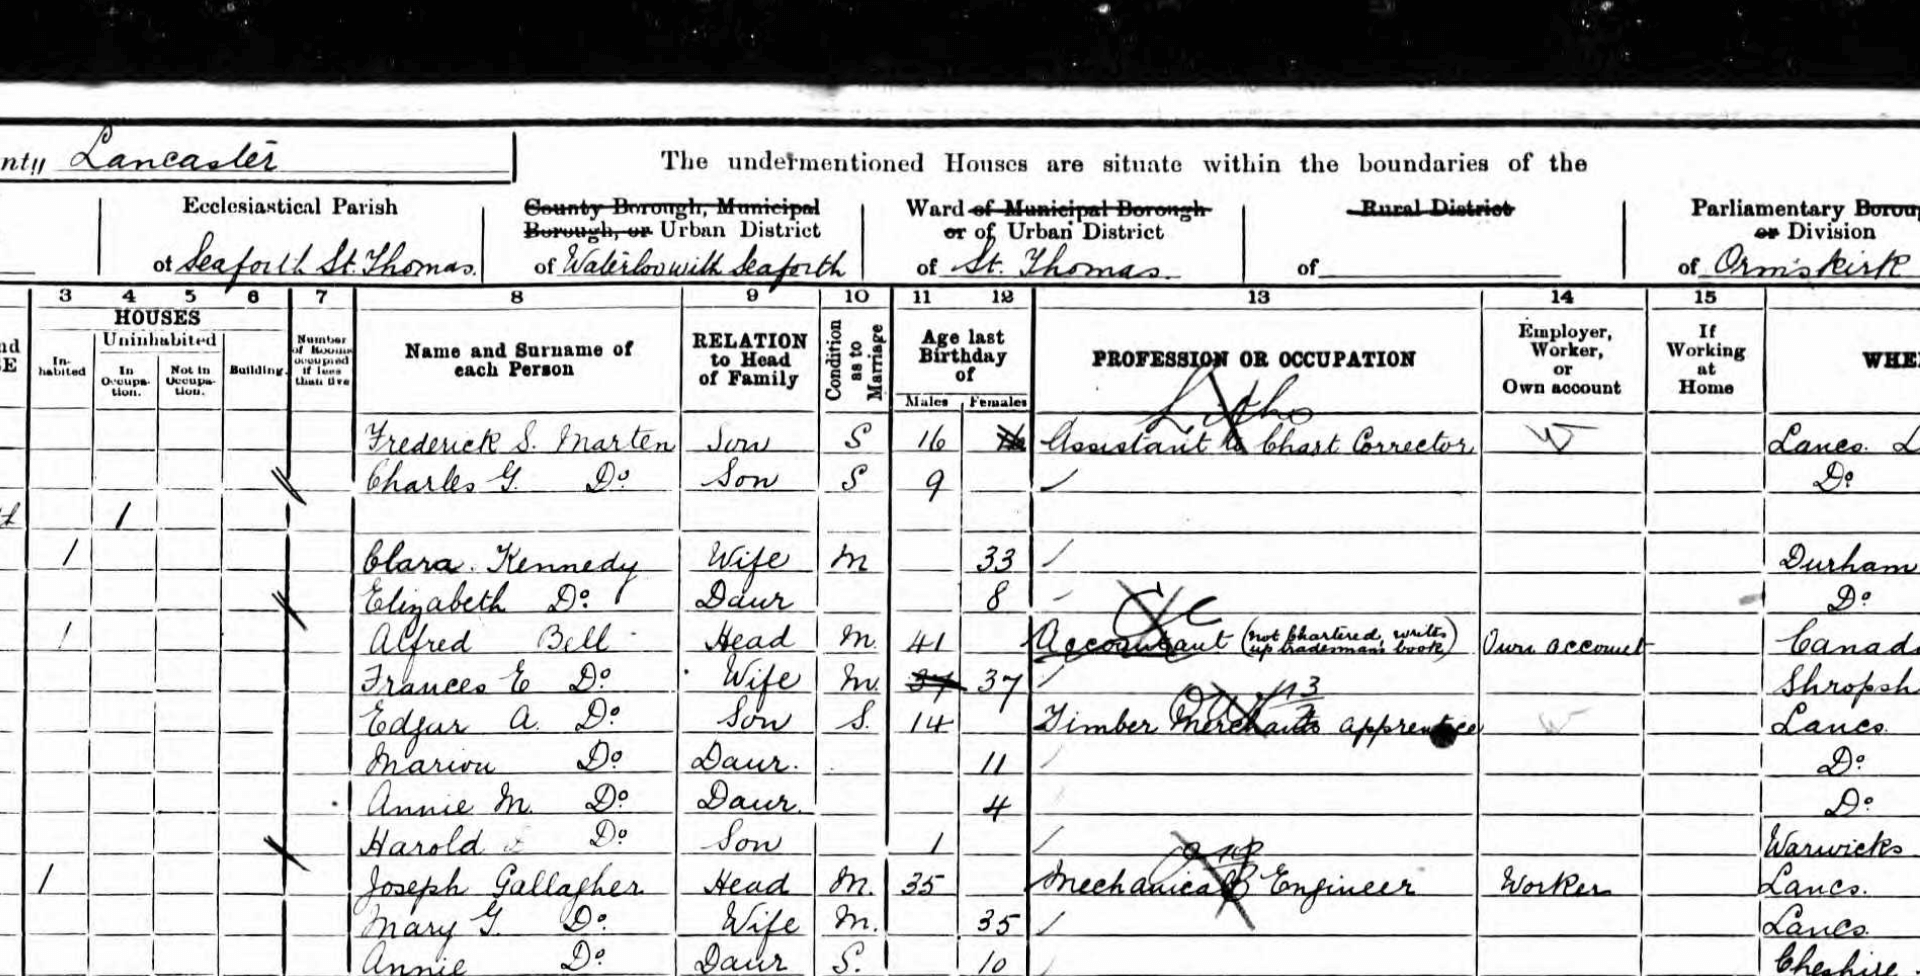 nty Lancaster The undermentioned Houses are situate within the boundaries of the
Ecclesiastical Parish County Borough, Municipal Ward of Municipal Borough Rural District Parliamentary Borou
Borough, or Urban District or of Urban District or Division
of Seaforth St. Thomas. of Waterloo with Seaforth of St. Thomas. of of Ormskirk
3 4 5 6 7 8 9 10 11 12 13 14 15
HOUSES
nd
E In-habited Uninhabited In Occupa-tion. Not in Occupa-tion. Building. Number of Rooms occupied if less than five Name and Surname of each Person RELATION to Head of Family Condition as to Marriage Age last Birthday of Males Females PROFESSION OR OCCUPATION Employer, Worker, or Own account If Working at Home WHE
Litho
Frederick S. Marten Son S 16 Assistant to Chart Corrector W Lancs. L
Charles G. Do Son S 9 Do
1
1 Clara. Kennedy Wife M 33 Durham
Elizabeth Do Daur 8 Do
1 Alfred Bell Head M. 41 Accountant (not Chartered, writes up tradesman's book) Own account Canad
Frances E Do Wife M. 37 37 Shropsh
Edgar A. Do Son S. 14 Timber Merchants apprentice Lancs.
Marion Do Daur. 11 Do
Annie M. Do Daur. 4 Do
Harold Do Son 1 Warwicks
1 Joseph Gallagher Head M. 35 Mechanical Engineer Worker Lancs.
Mary G. Do Wife M. 35 Lancs.
Annie Do Daur S. 10 Cheshire